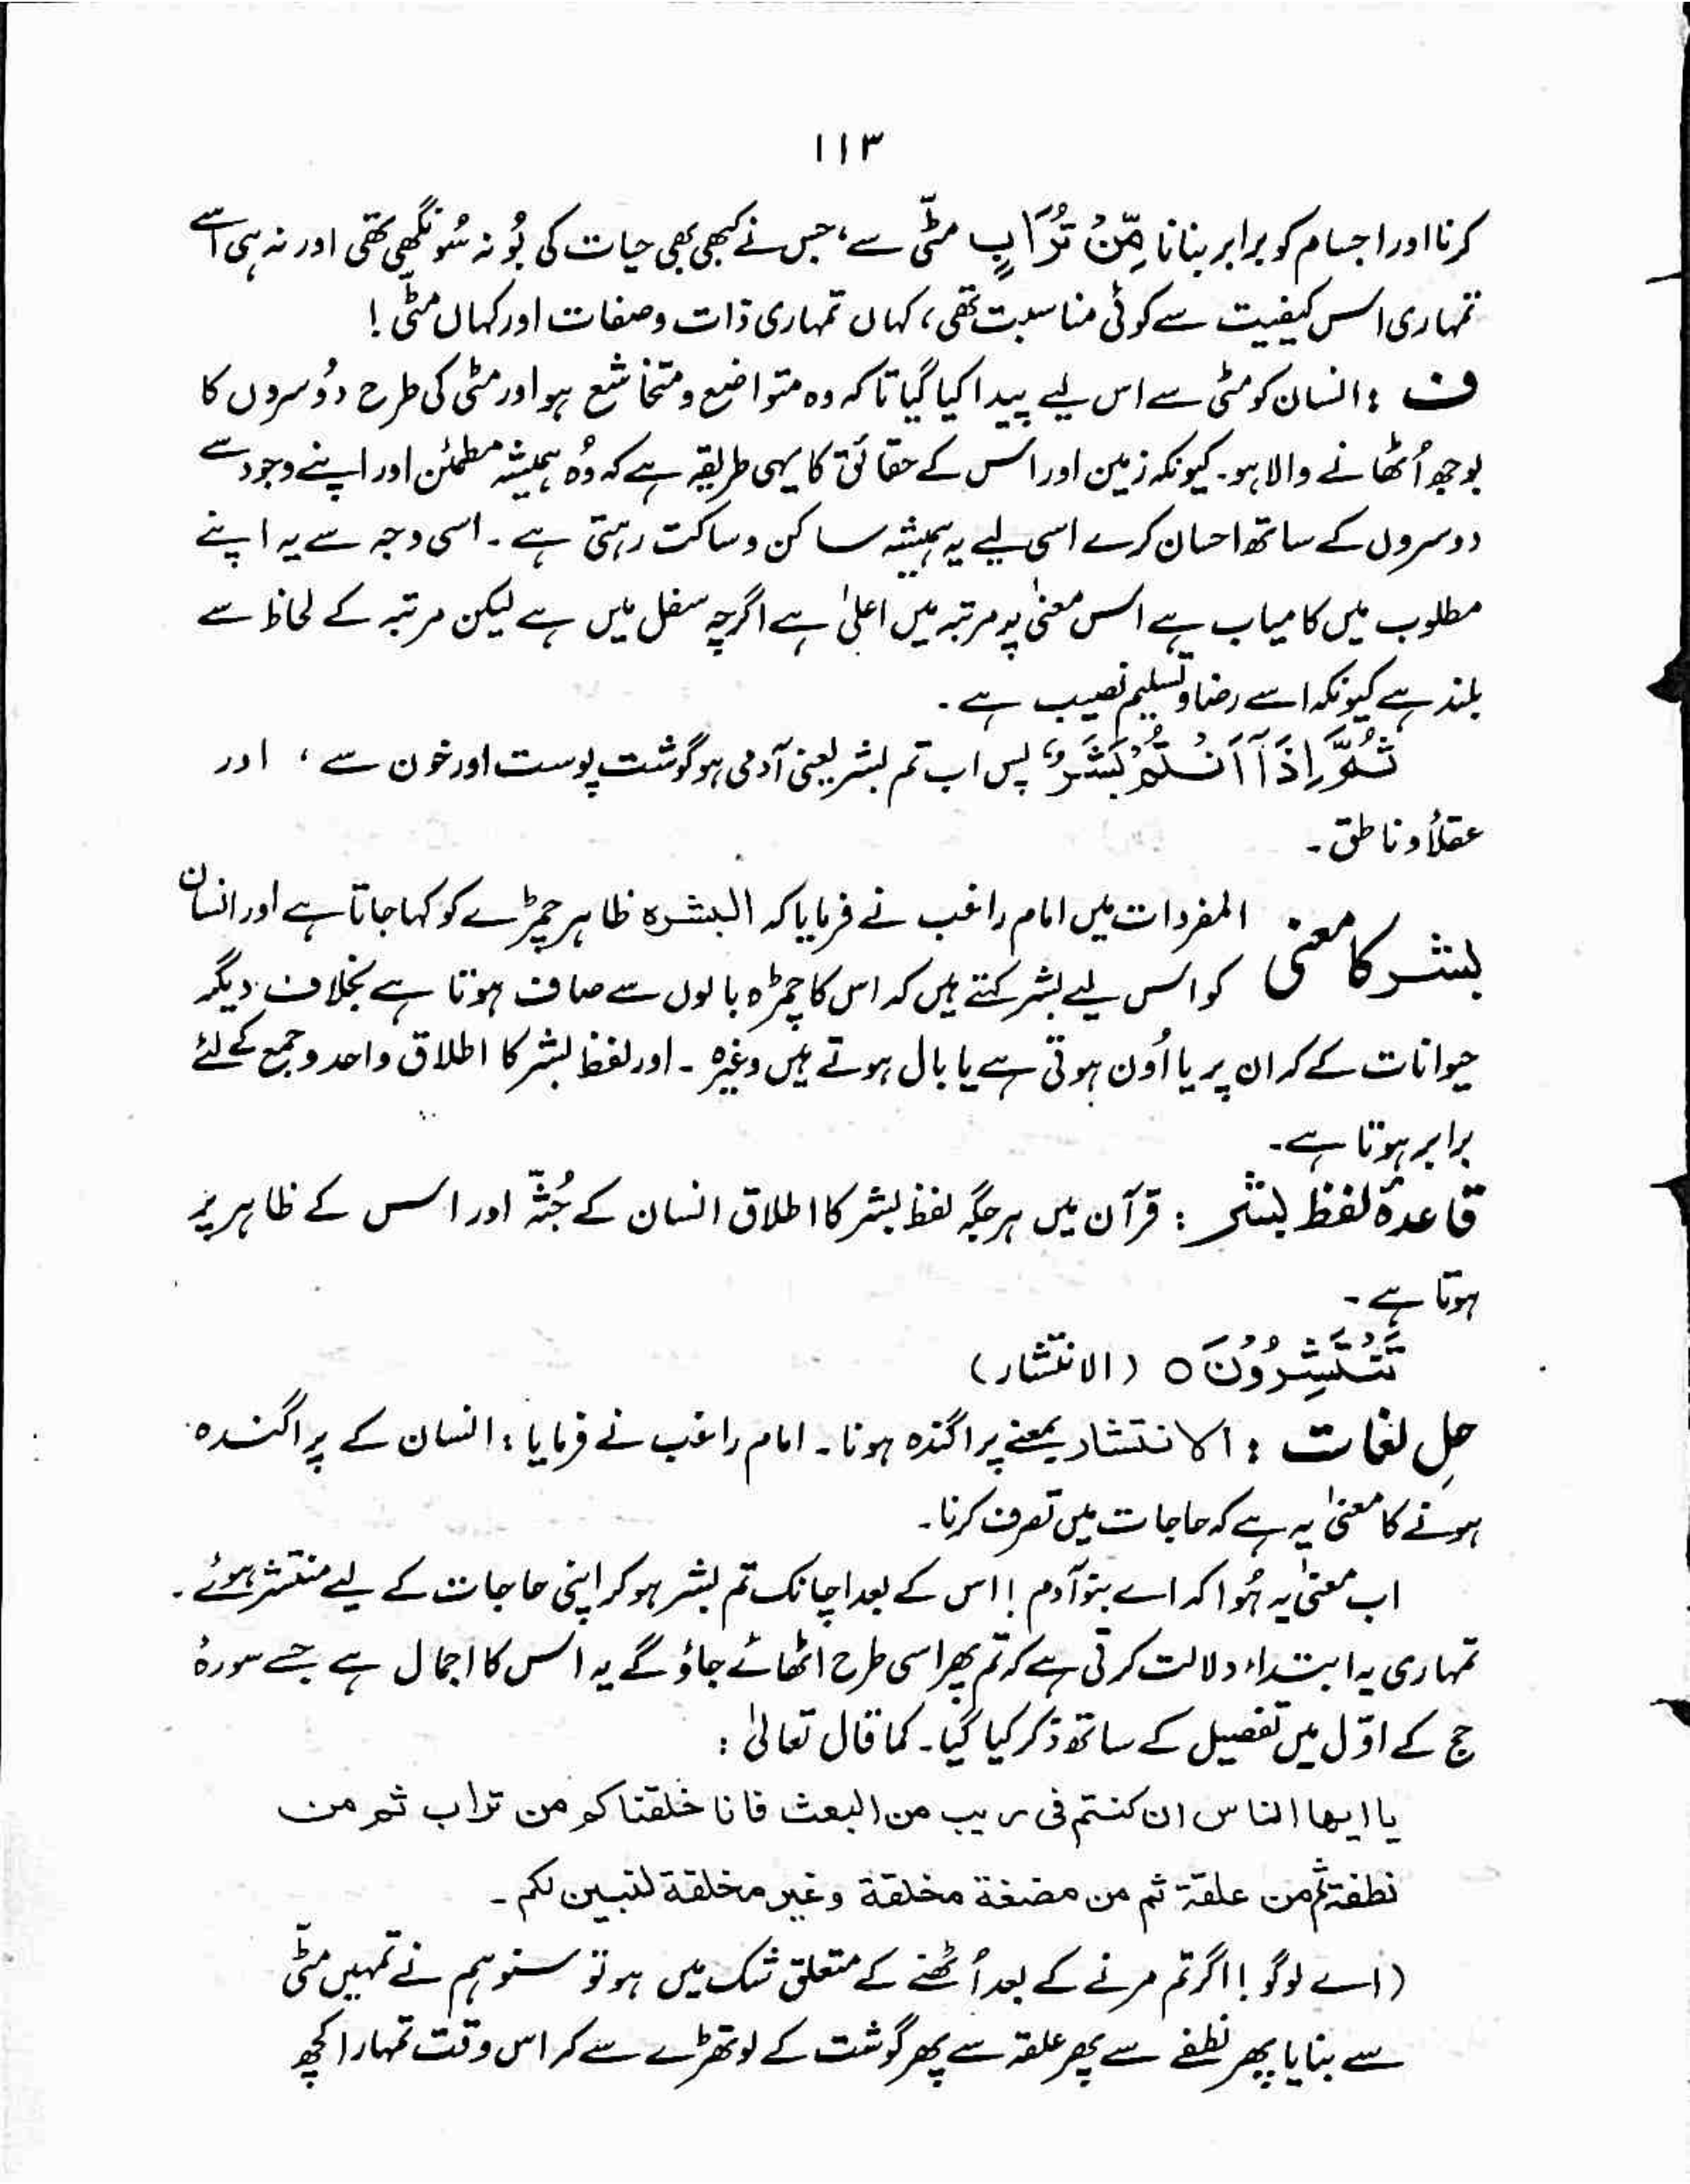 ۱۱۳
کرنا اور اجسام کو برابر بنانا مِّنْ تُرَابٍ مٹّی سے، جس نے کبھی بھی حیات کی بُو نہ سُونگھی تھی اور نہ ہی اسے
تمہاری اس کیفیت سے کوئی مناسبت تھی، کہاں تمہاری ذات وصفات اور کہاں مٹّی!
ف : انسان کو مٹی سے اس لیے پیدا کیا گیا تاکہ وہ متواضع و متخاشع ہو اور مٹی کی طرح دُوسروں کا
بوجھ اُٹھانے والا ہو۔ کیونکہ زمین اور اس کے حقائق کا یہی طریقہ ہے کہ وُہ ہمیشہ مطمئن اور اپنے وجود سے
دوسروں کے ساتھ احسان کرے اسی لیے یہ ہمیشہ ساکن وساکت رہتی ہے۔ اسی وجہ سے یہ اپنے
مطلوب میں کامیاب ہے اس معنیٰ پر مرتبہ میں اعلیٰ ہے اگرچہ سفل میں ہے لیکن مرتبہ کے لحاظ سے
بلند ہے کیونکہ اسے رضا و تسلیم نصیب ہے۔
ثُمَّ اِذَآ اَنْتُمْ بَشَرٌ پس اب تم بشر یعنی آدمی ہو گوشت پوست اور خون سے، اور
عقلاً و ناطق۔
بشر کا معنی المفردات میں امام راغب نے فرمایا کہ البشرہ ظاہر چمڑے کو کہا جاتا ہے اور انسان
کو اس لیے بشر کہتے ہیں کہ اس کا چمڑہ بالوں سے صاف ہوتا ہے بخلاف دیگر
حیوانات کے کہ ان پر یا اُون ہوتی ہے یا بال ہوتے ہیں وغیرہ۔ اور لفظ بشر کا اطلاق واحد و جمع کے لئے
برابر ہوتا ہے۔
قاعدۂ لفظ بشر : قرآن میں ہر جگہ لفظ بشر کا اطلاق انسان کے جُثّہ اور اس کے ظاہر پر
ہوتا ہے۔
تَنْتَشِرُوْنَ ○ (الانتشار)
حلِ لغات : الانتشار بمعنے پراگندہ ہونا۔ امام راغب نے فرمایا : انسان کے پراگندہ
ہونے کا معنیٰ یہ ہے کہ حاجات میں تصرف کرنا۔
اب معنیٰ یہ ہُوا کہ اے بنو آدم ! اس کے بعد اچانک تم بشر ہو کر اپنی حاجات کے لیے منتشر ہوئے۔
تمہاری یہ ابتداء دلالت کرتی ہے کہ تم پھر اسی طرح اٹھائے جاؤ گے یہ اس کا اجمال ہے جسے سورۂ
حج کے اوّل میں تفصیل کے ساتھ ذکر کیا گیا۔ کما قال تعالیٰ :
یا ایھا الناس ان کنتم فی ریب من البعث فانا خلقناکم من تراب ثم من
نطفۃ ثم من علقۃ ثم من مضغۃ مخلقۃ وغیر مخلقۃ لنبین لکم۔
(اے لوگو ! اگر تم مرنے کے بعد اُٹھنے کے متعلق شک میں ہو تو سنو ہم نے تمہیں مٹّی
سے بنایا پھر نطفے سے پھر علقہ سے پھر گوشت کے لوتھڑے سے کہ اس وقت تمہارا کچھ